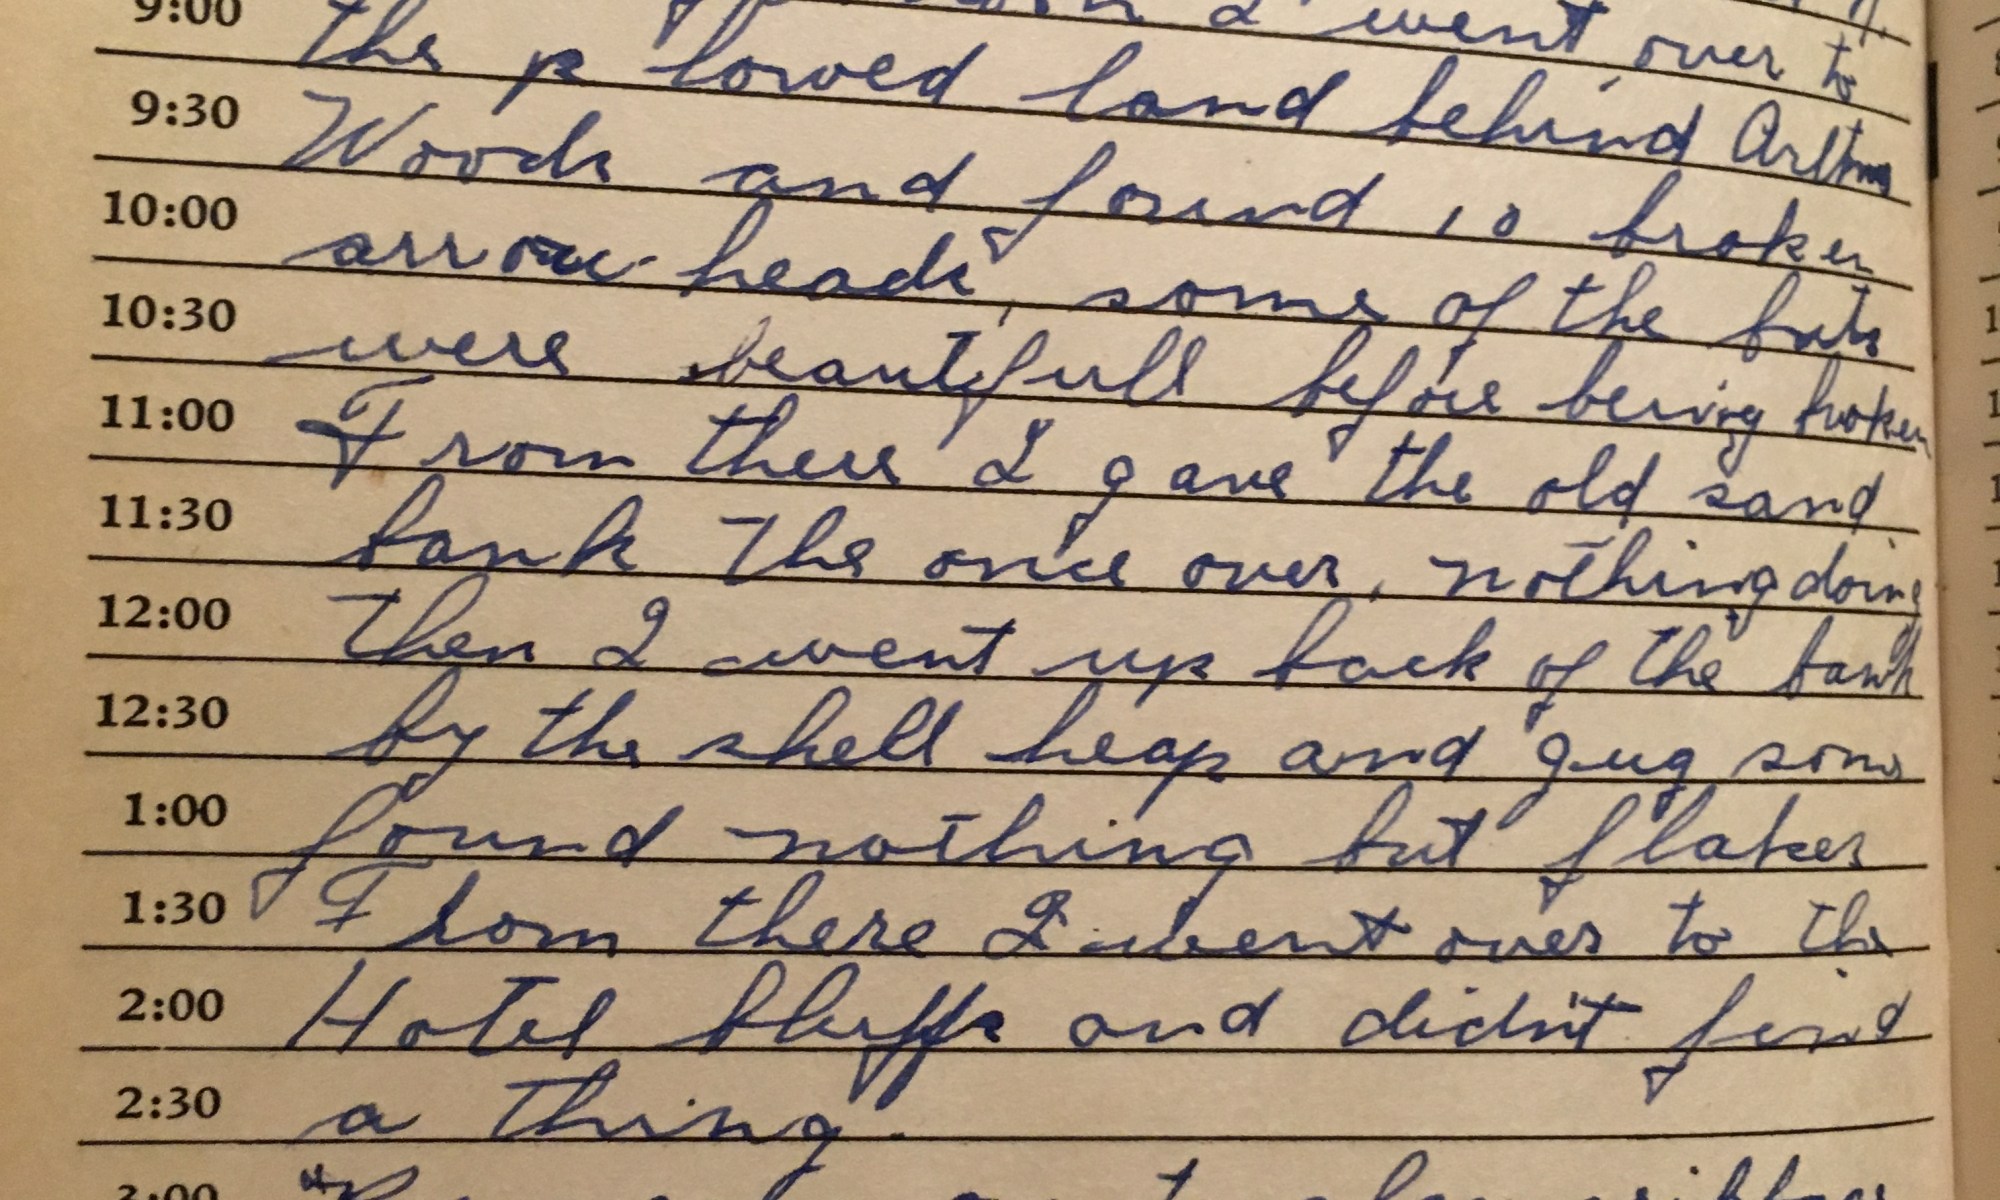 9:00 I went over to
9:30 the plowed land behind Arthur
10:00 Woods and found 10 broken
10:30 arrow-heads, some of the buts
11:00 were beautifull before being broken
11:30 From there I gave the old sand
12:00 bank The once over, nothing doing
12:30 Then I went up back of the bank
1:00 by the shell heap and gug some
1:30 found nothing but flakes
2:00 From there I went over to the
2:30 Hotel bluffs and didn't find
a thing.
3:00